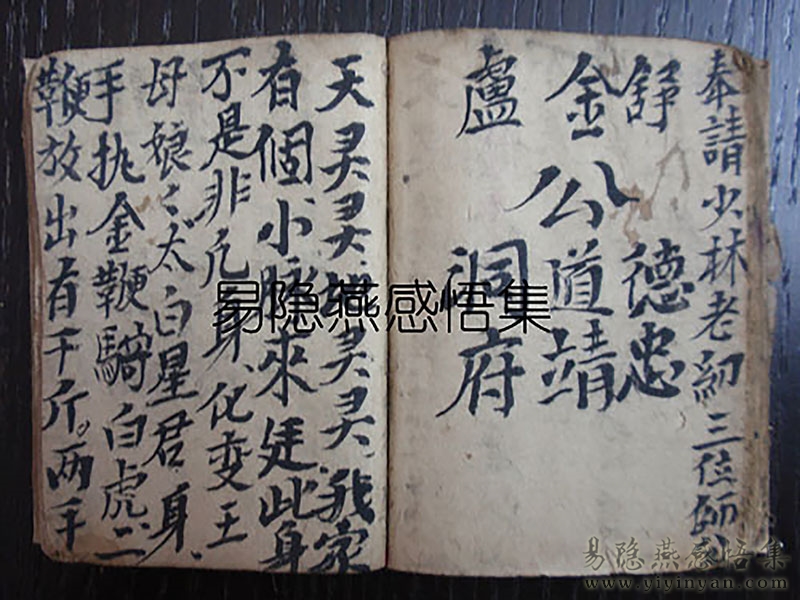 奉請少林老三位師
舒 德忠
金 公道靖
盧 洞府
天灵灵灵灵我家
有個小來廷此身
不是非凢身化变王
母娘々太白星君身
手执金鞭騎白虎二
鞭放出有千斤两手
易隐燕感悟集
易隐燕感悟集
www.yiyinyan.com